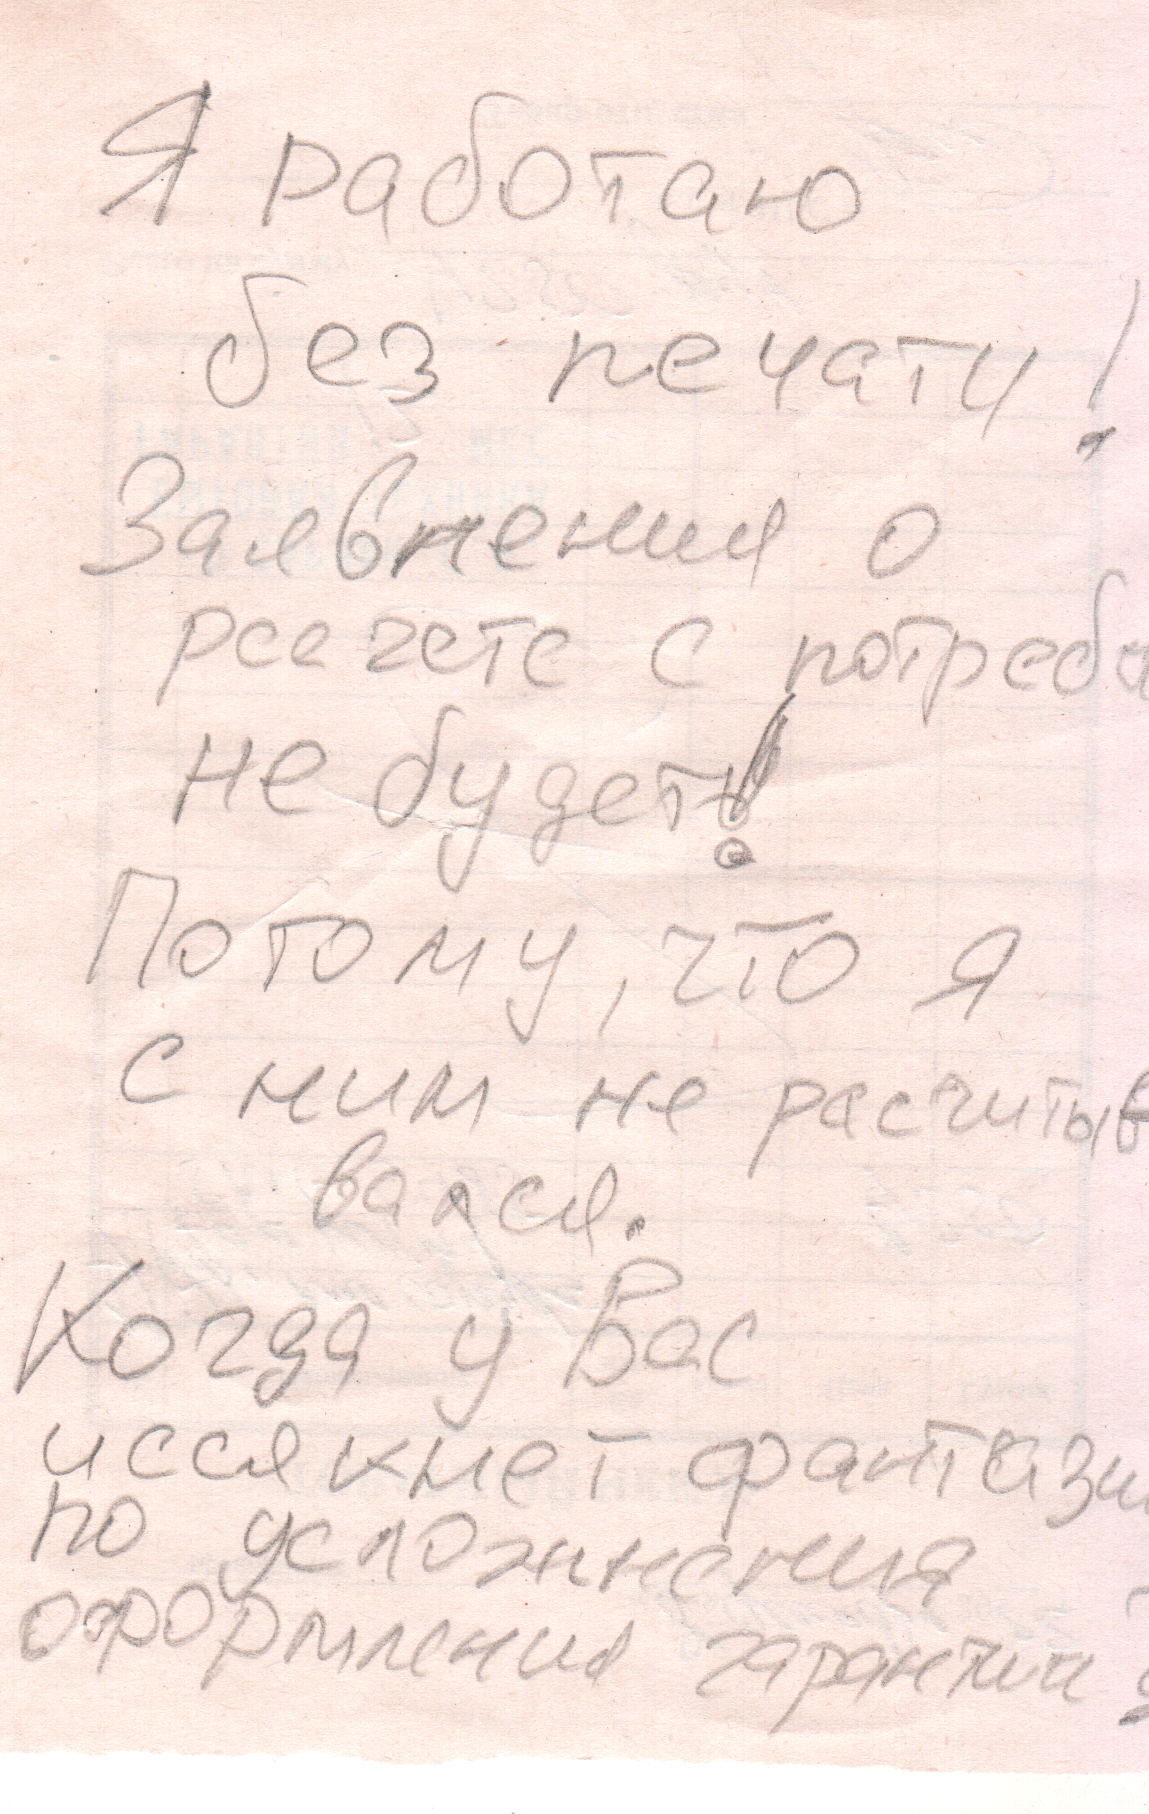 Я работаю
без печати!
Заявнения о
рсачете с потреб
не будет!
Потому, что я
с ним не расчитыв
вался.
Когда у Вас
иссякнет фантази
по усложнения
оформления гарантии ?